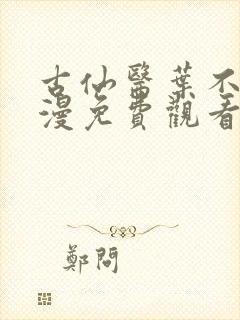 古仙醫葉不
漫免費觀看
鄭問